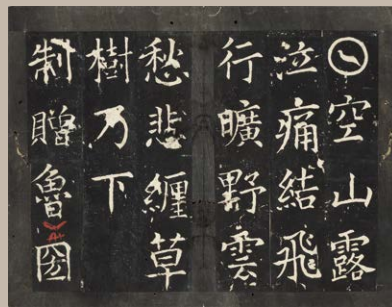 空山露
泣痛結飛
行曠野雲
愁悲纏草
樹乃下
制贈魯